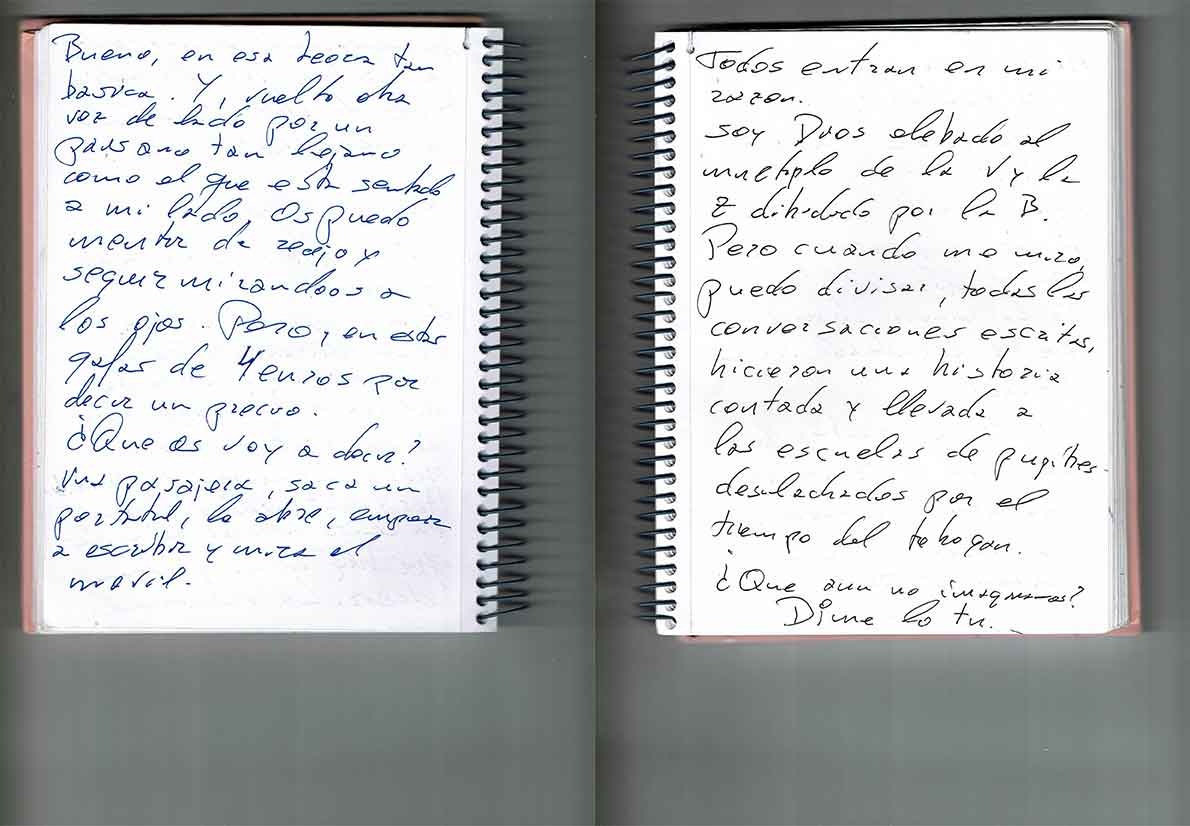 Bueno, en esa teoria tan
basica. Y, vuelto otra
vez de lado por un
paisano tan lejano
como el que esta sentado
a mi lado. Os puedo
mentir de reojo y
seguir mirandoos a
los ojos. Pero, en estas
gafas de 4 euros por
decir un precio.
¿Que os voy a decir?
Una pasajera, saca un
portatil, lo abre, empieza
a escribir y mira el
movil.
Todos entran en mi
razon.
Soy Dios elebado al
multiplo de la V y la
Z dibidido por la B.
Pero cuando me miro,
puedo divisar, todas las
conversaciones escritas,
hicieron una historia
contada y llevada a
las escuelas de pupitres
desvachados por el
tiempo del tobogan.
¿Que aun no imaginas?
Dime lo tu.